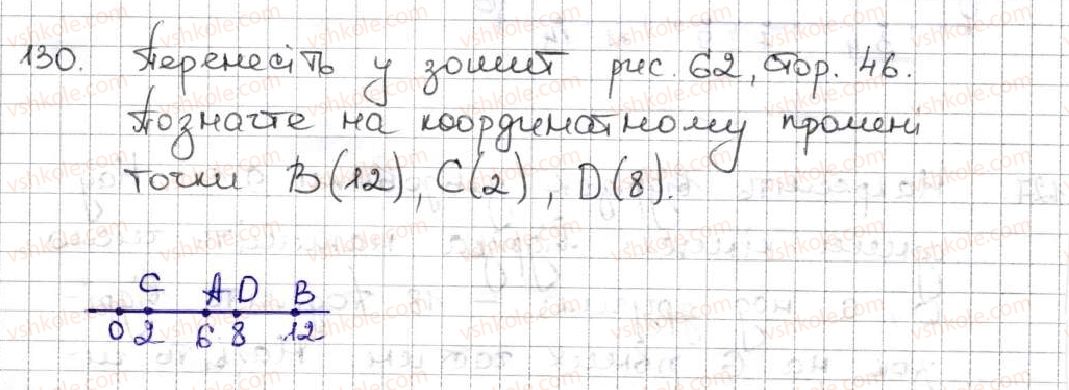 130. Перенесіть у зошит рис. 62, стор. 46.
Позначте на координатному промені
точки B(12), C(2), D(8).
C A D B
0 2 6 8 12